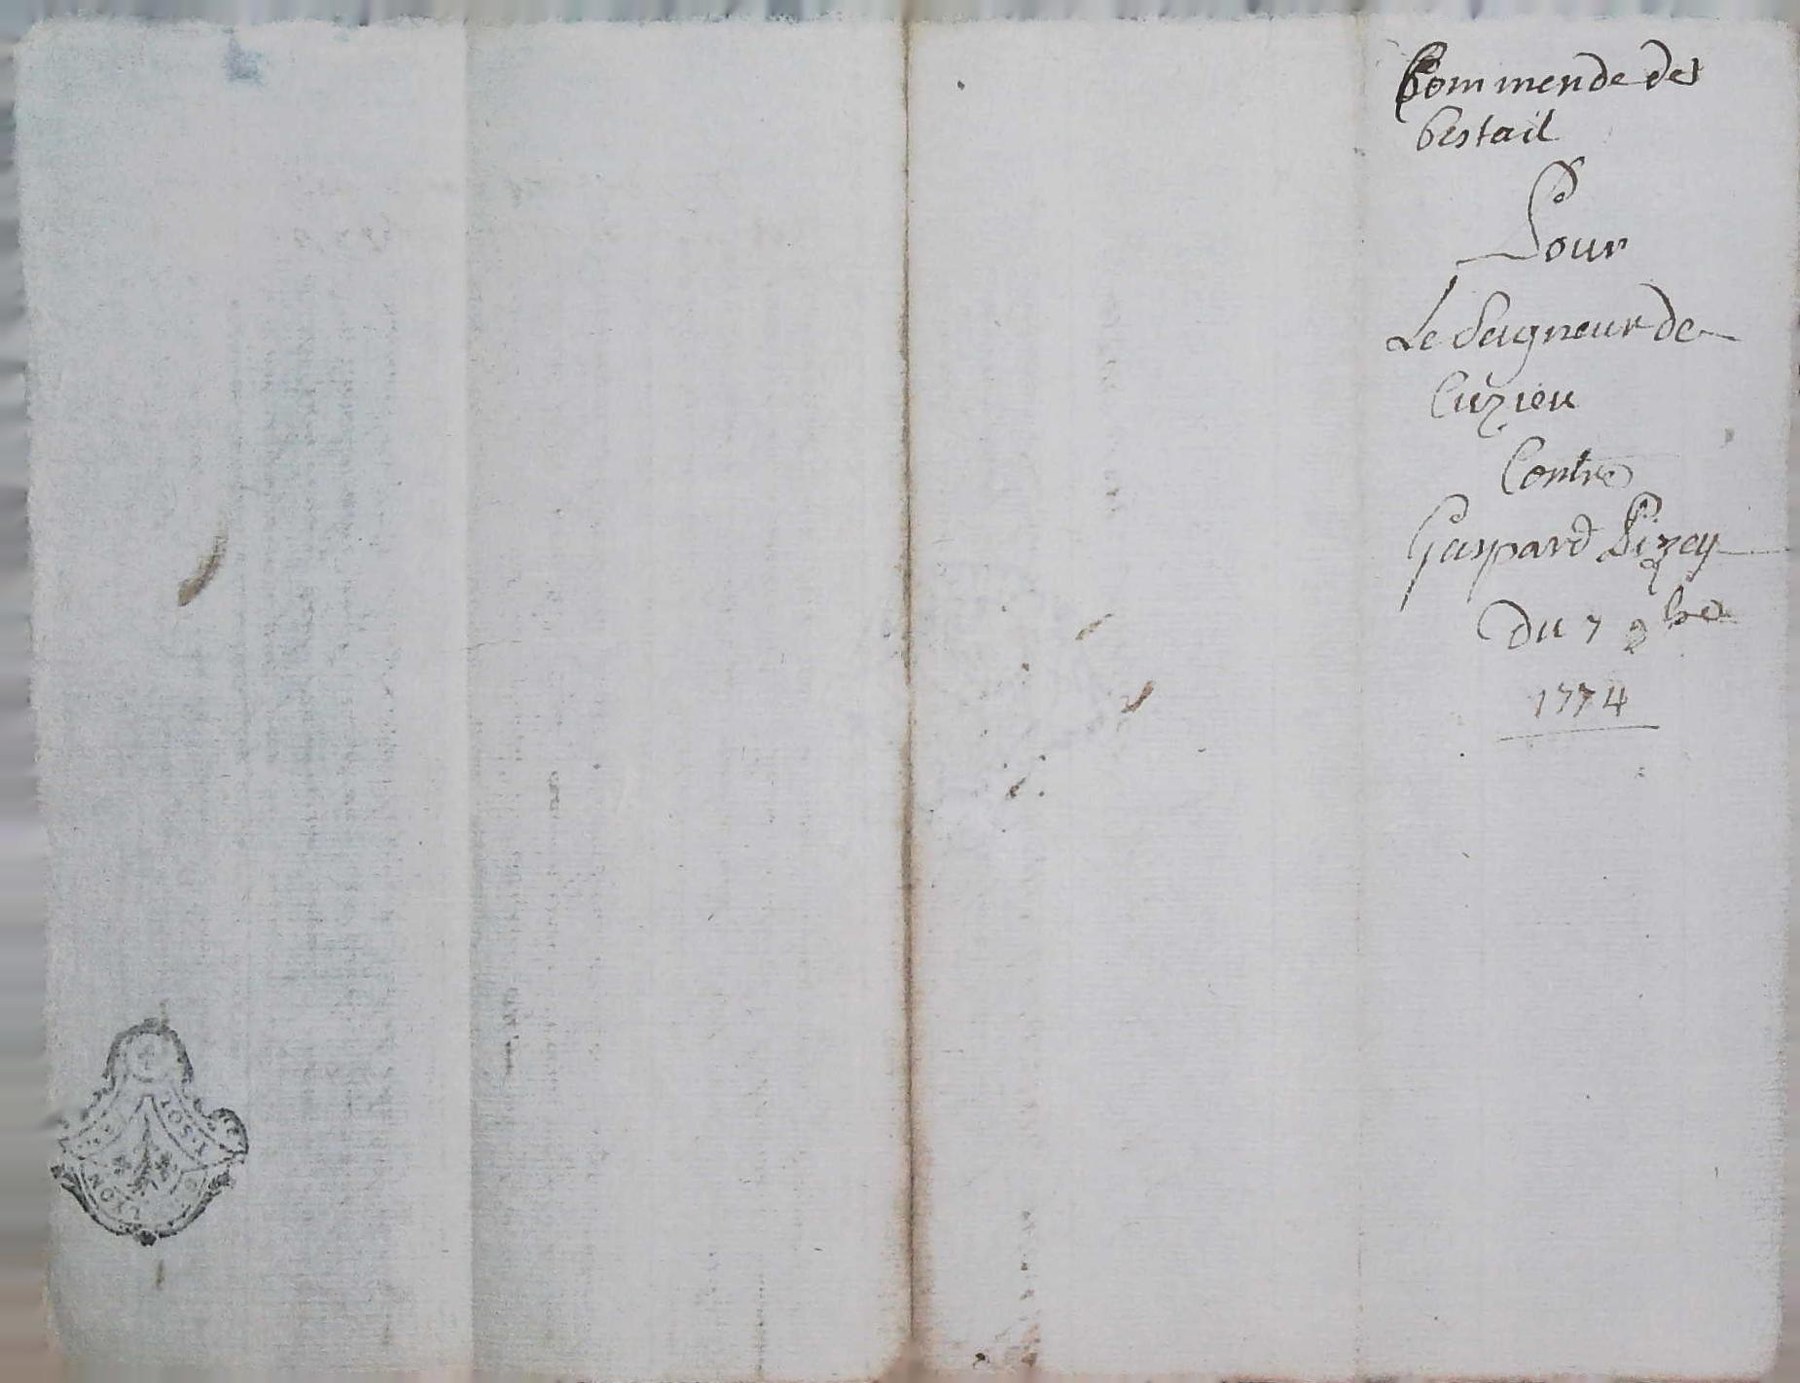 Commende de
bestail
Pour
Le Seigneur de
Cuzieu
Contre
Gaspard Pizey
Du 7 9bre
1774
LYON